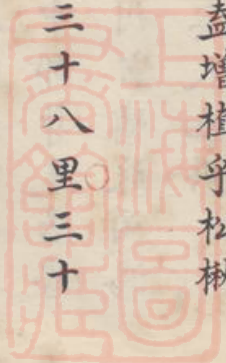 盍增植乎松楸
三十八里三十